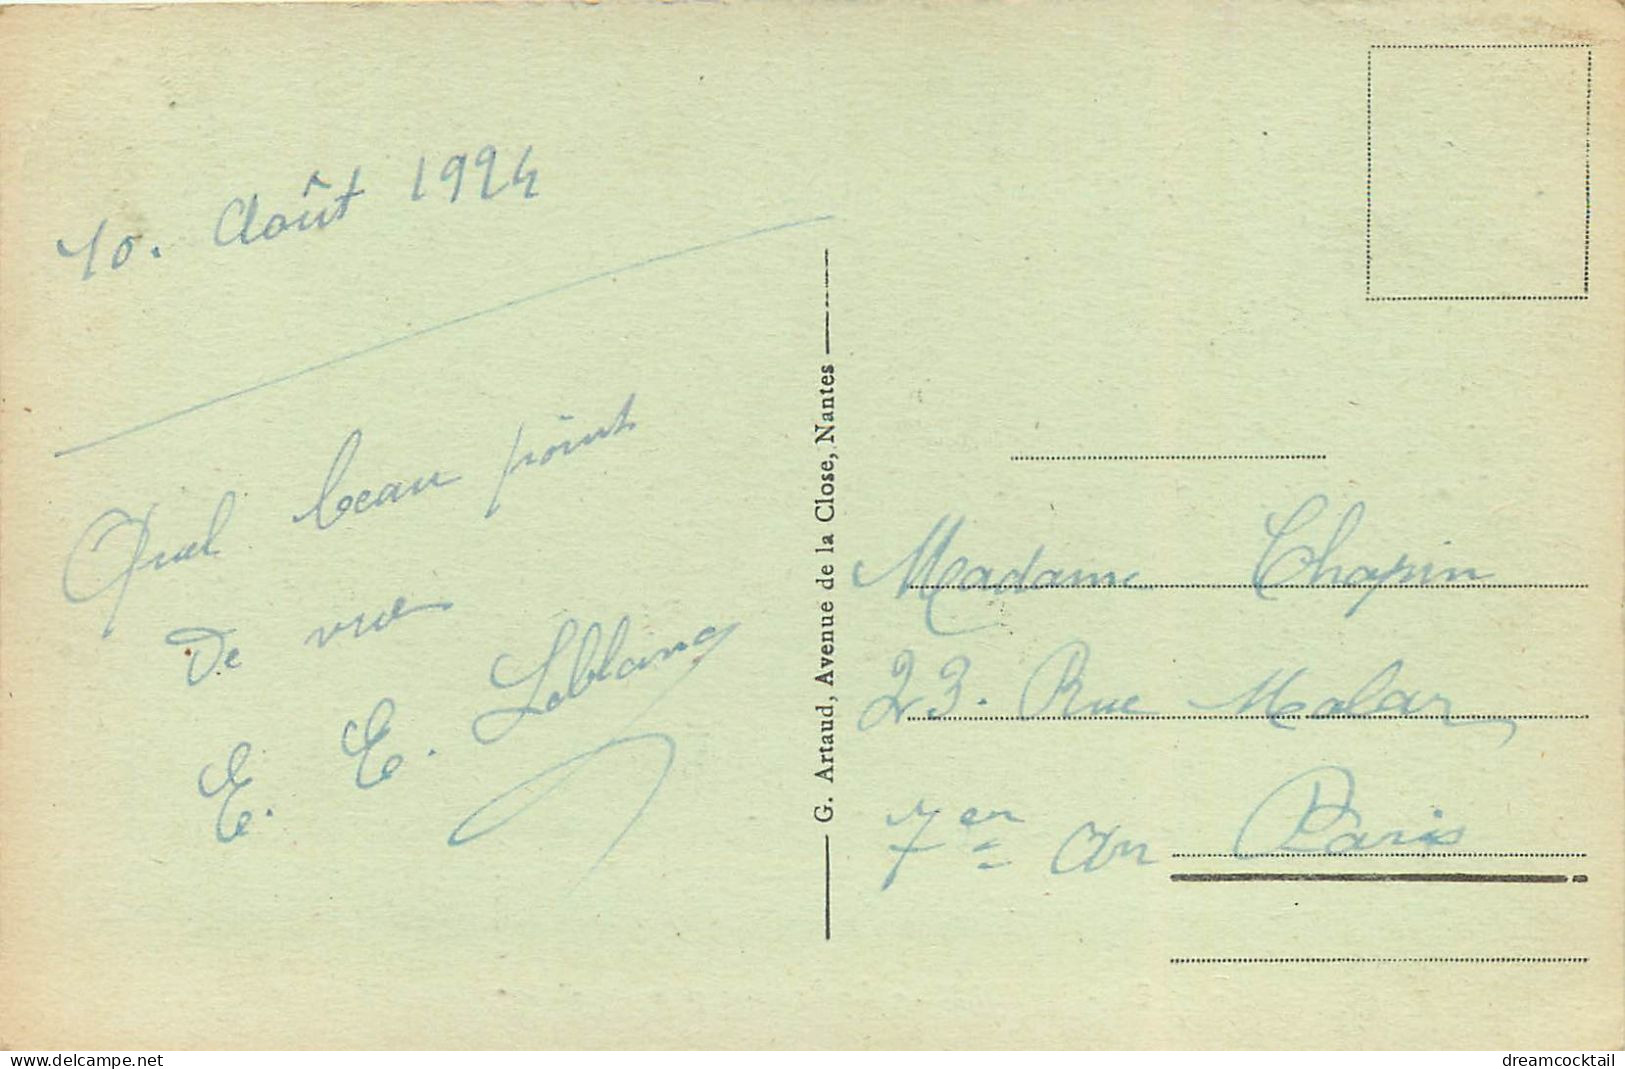 10. Août 1924
Quel beau point
De vue
E. E. Leblanc
G. Artaud, Avenue de la Close, Nantes
Madame Chapin
23. Rue Malar
7er Arr Paris
delcampe.net
dreamcocktail